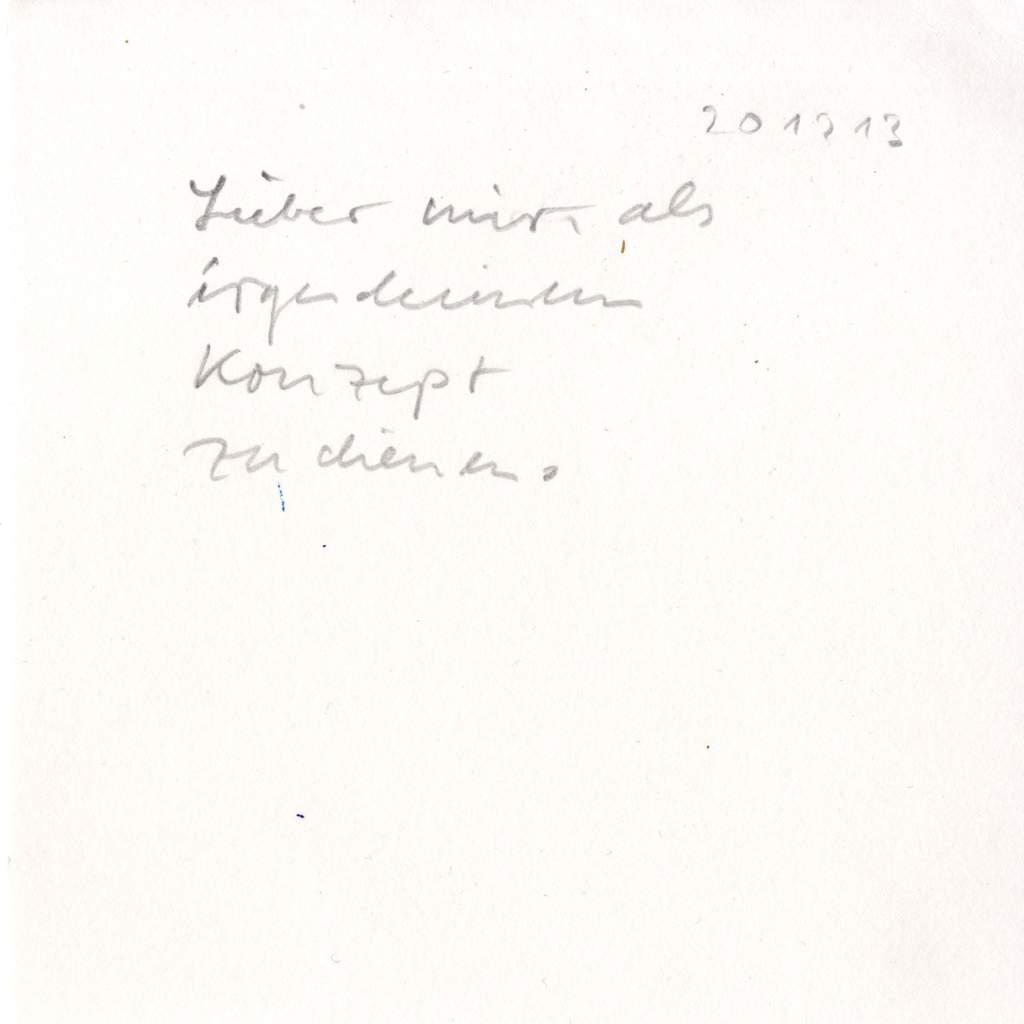 201213
Lieber mir als
irgendeinem
Konzept
zu dienen.